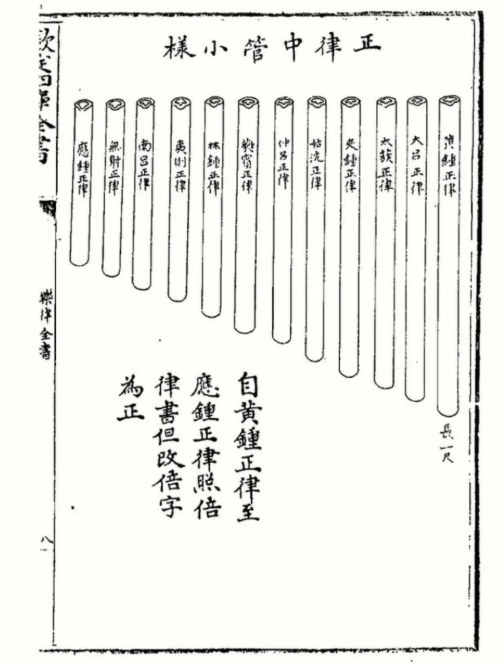 正律中管小樣
黃鍾正律
長一尺
大呂正律
太蔟正律
夾鍾正律
姑洗正律
仲呂正律
蕤賓正律
林鍾正律
夷則正律
南呂正律
無射正律
應鍾正律
自黃鍾正律至
應鍾正律照倍
律書但改倍字
為正
欽定四庫全書
樂律全書
八